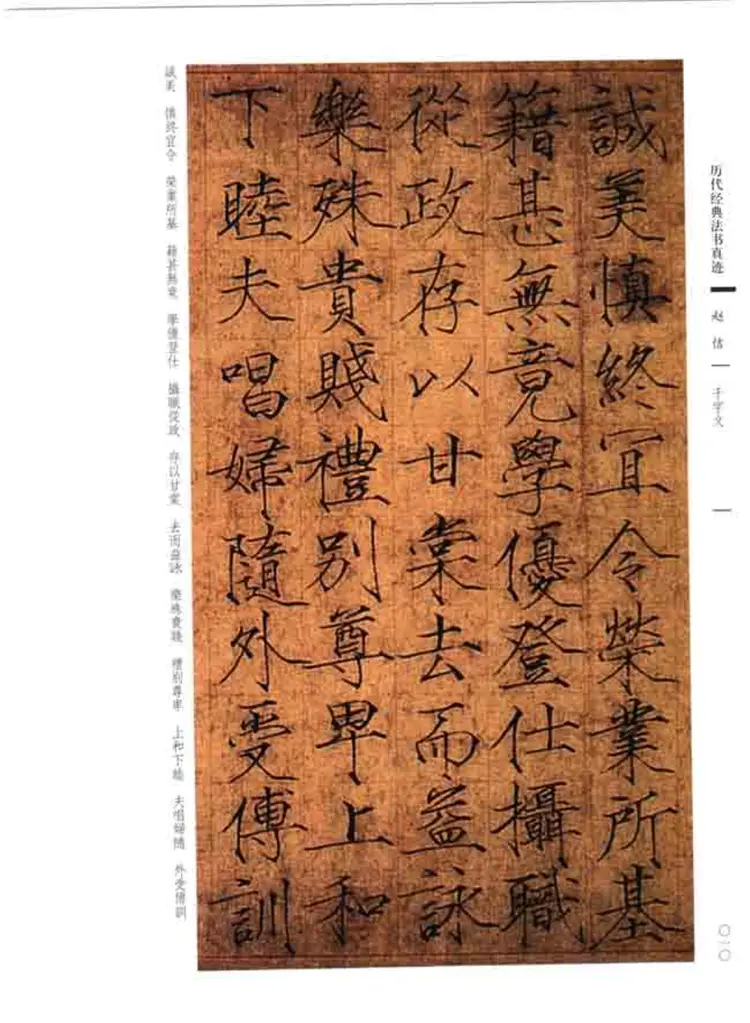 历代经典法书真迹
赵佶
千字文
〇一〇
誠美慎終宜令榮業所基
籍甚無竟學優登仕攝職
從政存以甘棠去而益詠
樂殊貴賤禮別尊卑上和
下睦夫唱婦隨外受傅訓
誠美 慎終宜令 榮業所基 籍甚無竟 學優登仕 攝職從政 存以甘棠 去而益詠 樂殊貴賤 禮別尊卑 上和下睦 夫唱婦隨 外受傅訓